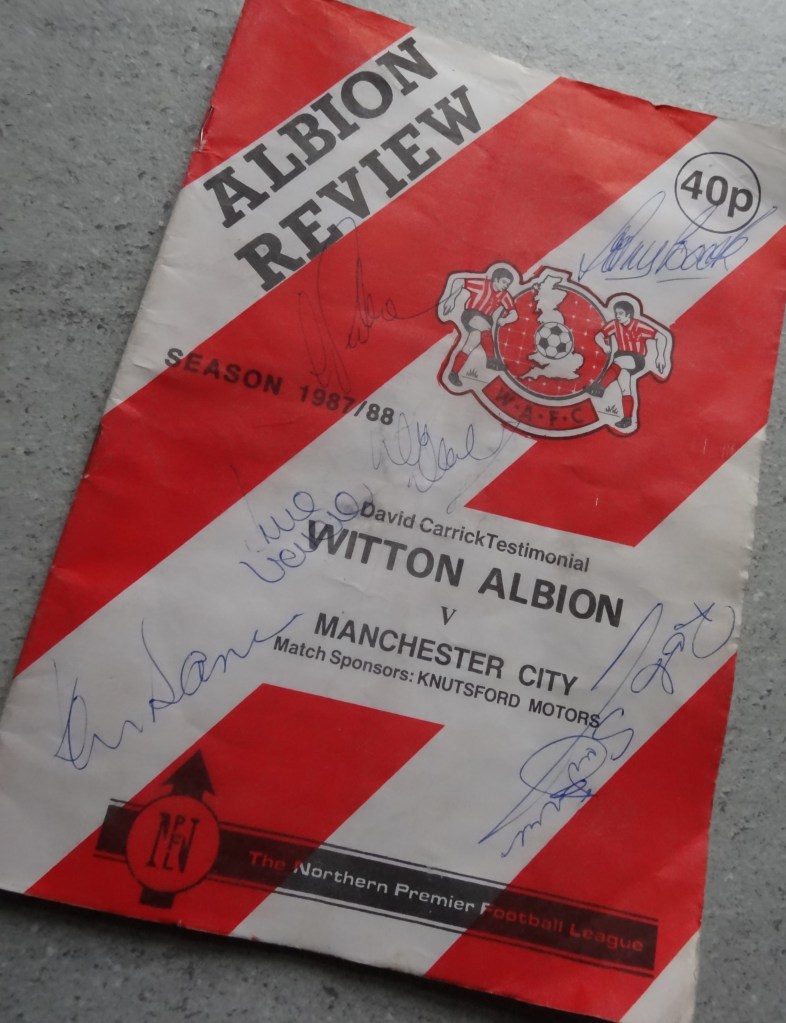 ALBION
REVIEW
40p
Tony Book
W·A·F·C
SEASON 1987/88
David Carrick Testimonial
WITTON ALBION
v
MANCHESTER CITY
Match Sponsors: KNUTSFORD MOTORS
The Northern Premier Football League